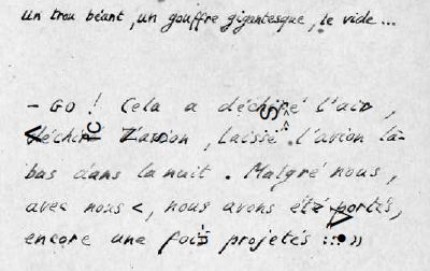 un trou béant, un gouffre gigantesque, le vide...
– GO ! Cela a déchiré l'air,
laissé l'avion là-
bas dans la nuit. Malgré nous,
avec nous <, nous avons été portés,
encore une fois projetés ...»